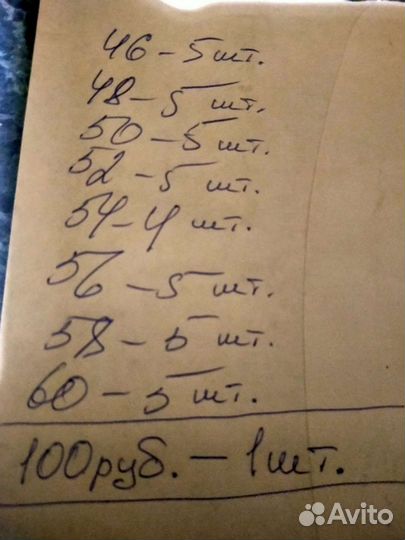 46 – 5 шт.
48 – 5 шт.
50 – 5 шт.
52 – 5 шт.
54 – 4 шт.
56 – 5 шт.
58 – 5 шт.
60 – 5 шт.
100 руб. – 1 шт.
Avito